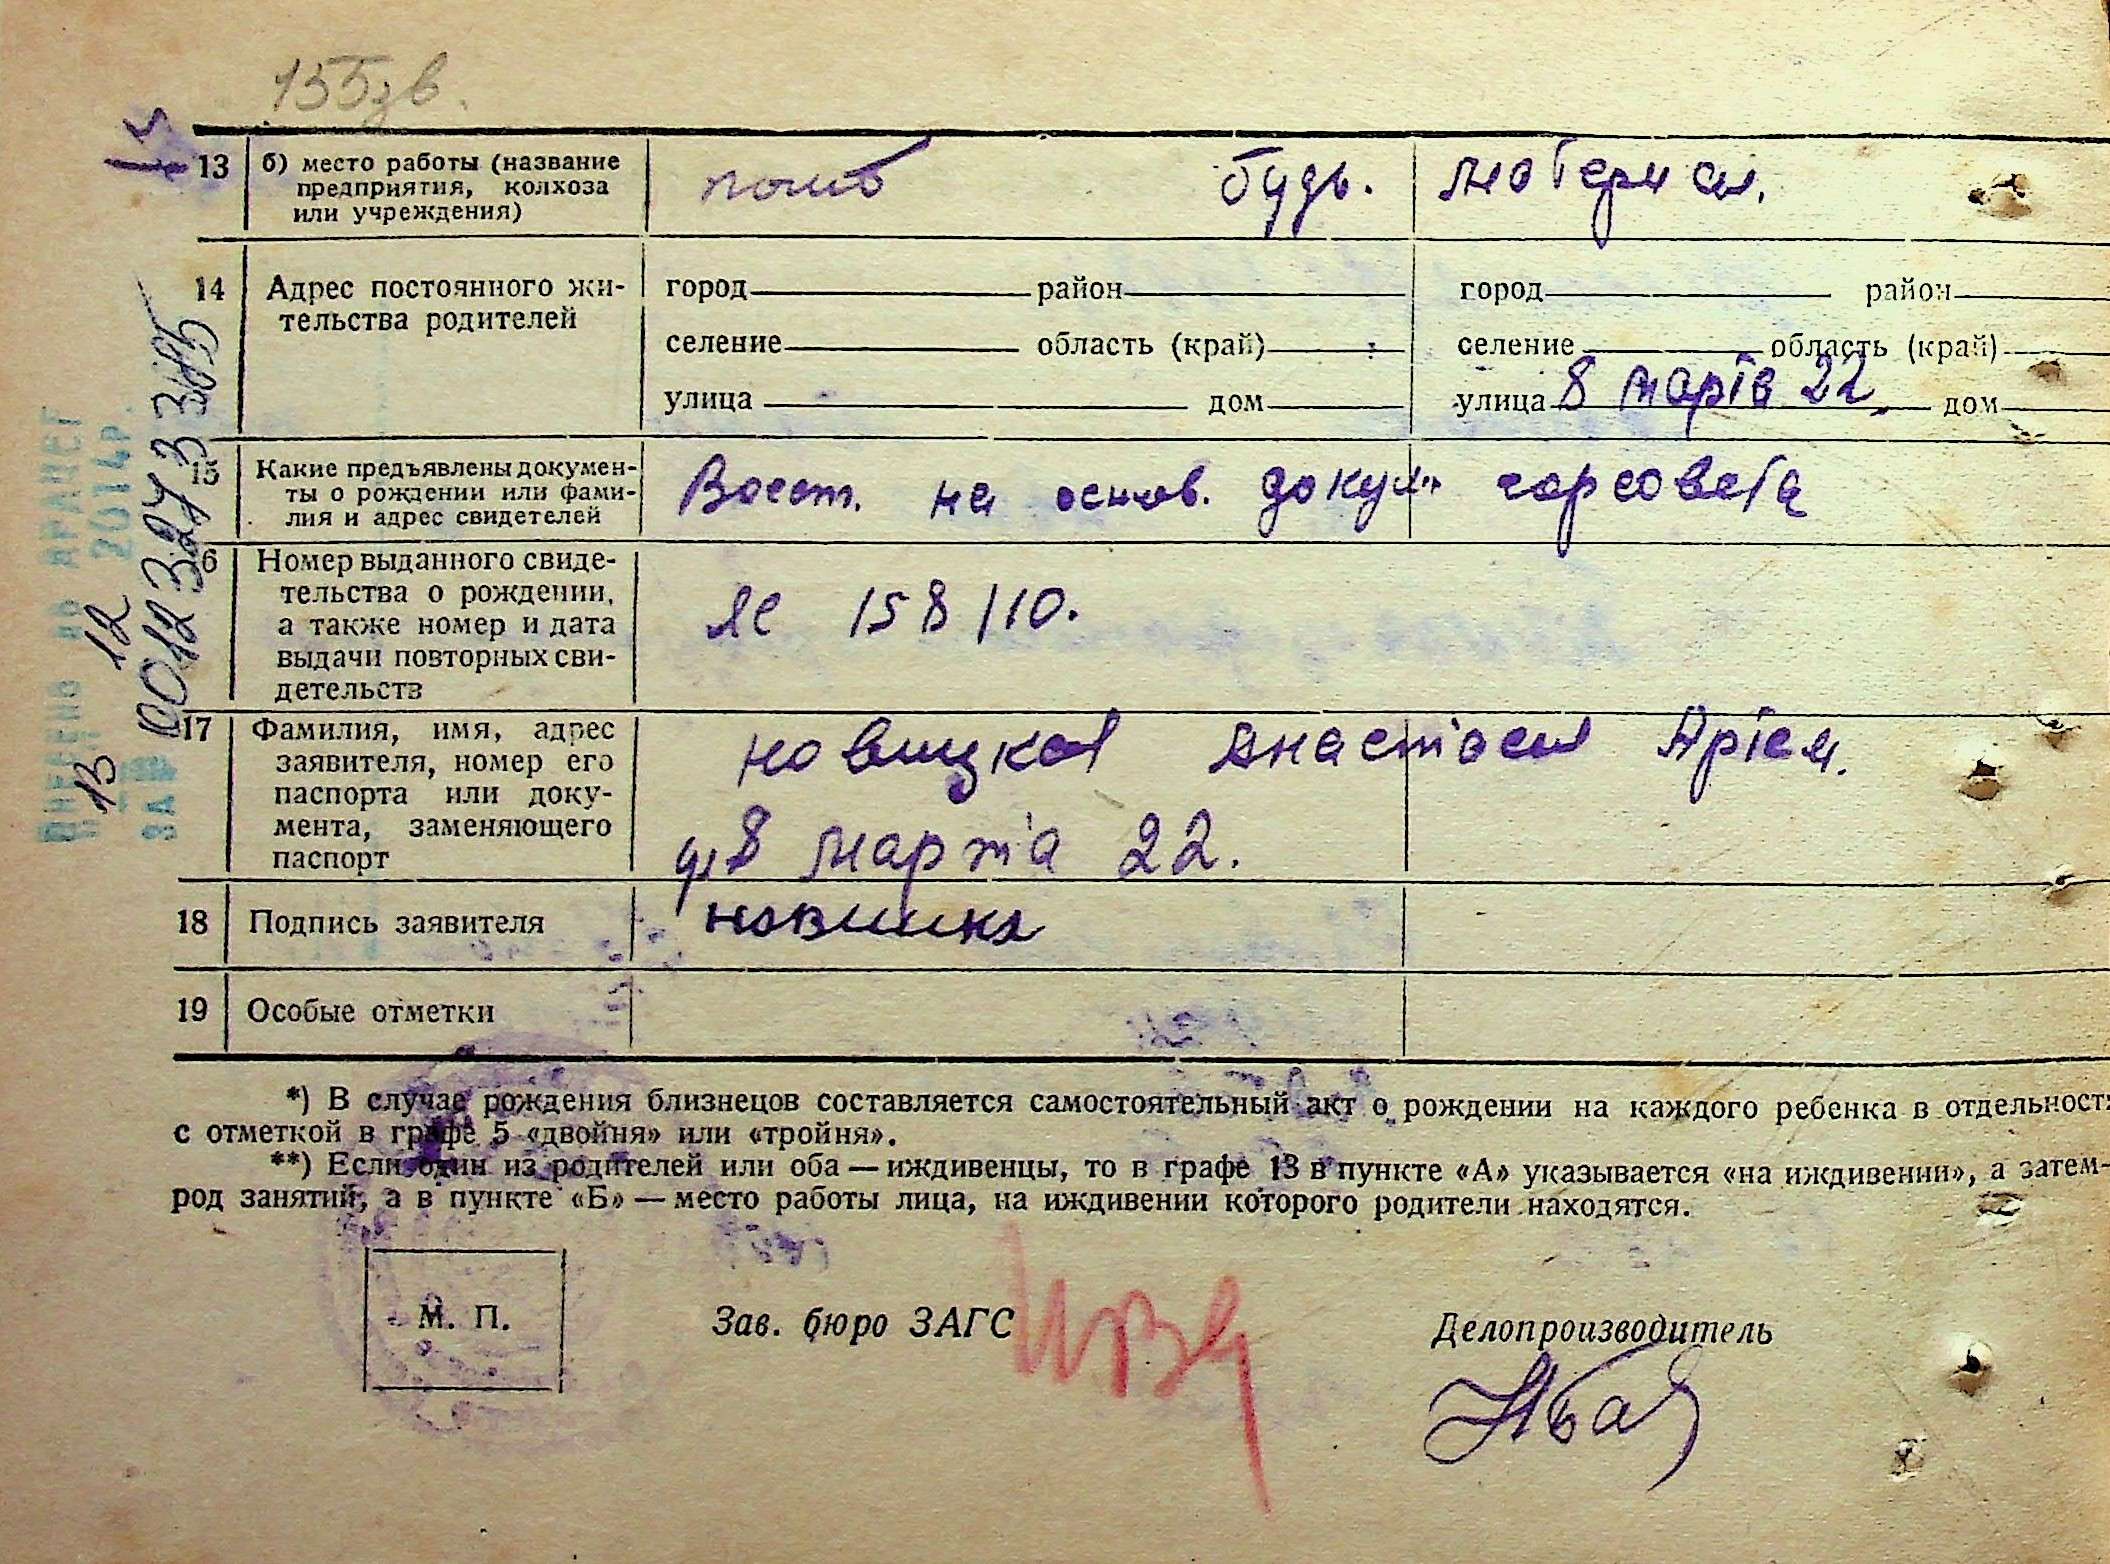 155зв.
13 б) место работы (название
предприятия, колхоза
или учреждения)
погиб будь. материал.
14 Адрес постоянного жи-
тельства родителей
город район город район
селение область (край) селение область (край)
улица дом улица 8 марта 22. дом
15 Какие предъявлены докумен-
ты о рождении или фами-
лия и адрес свидетелей
Восст. на основ. докум. горсовета
6 Номер выданного свиде-
тельства о рождении,
а также номер и дата
выдачи повторных сви-
детельств
ЯС 158110.
17 Фамилия, имя, адрес
заявителя, номер его
паспорта или доку-
мента, заменяющего
паспорт
Новицкая Анастасия Артем.
ул 8 марта 22.
18 Подпись заявителя
19 Особые отметки
*) В случае рождения близнецов составляется самостоятельный акт о рождении на каждого ребенка в отдельност
с отметкой в графе 5 «двойня» или «тройня».
**) Если один из родителей или оба — иждивенцы, то в графе 13 в пункте «А» указывается «на иждивении», а затем—
род занятий, а в пункте «Б» — место работы лица, на иждивении которого родители находятся.
М. П.
Зав. бюро ЗАГС
Делопроизводитель
13 12
2014р.